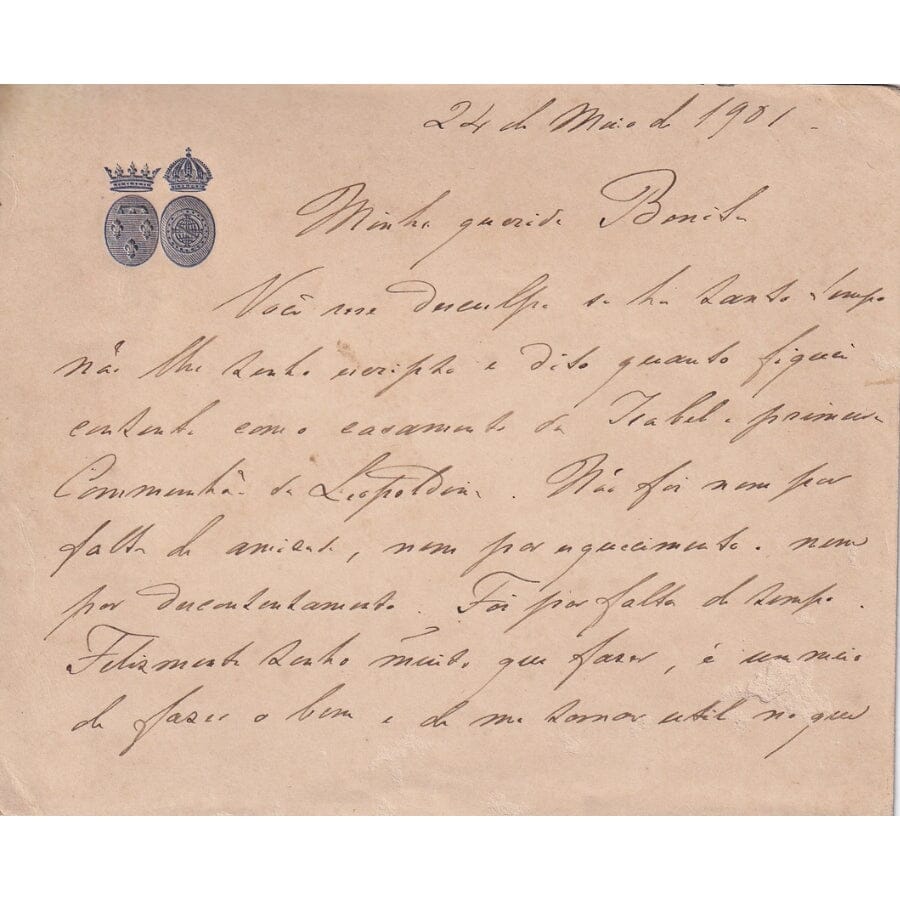 24 de Maio de 1901 -
Minha querida Bonita
Você me desculpe se ha tanto tempo
não lhe tenho escripto e dito quanto fiquei
contente com o casamento da Isabel e primeira
Communhão da Leopoldina. Não foi nem por
falta de amizade, nem por esquecimento. nem
por descontentamento. Foi por falta de tempo.
Felizmente tenho muito que fazer, é um meio
de fazer o bem e de me tornar util no que